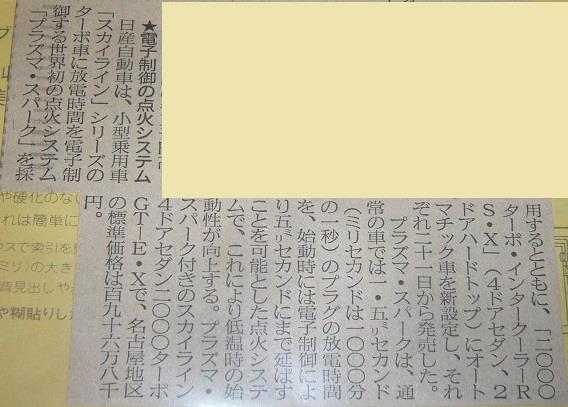 ★電子制御の点火システム
日産自動車は、小型乗用車
「スカイライン」シリーズの
ターボ車に放電時間を電子制
御する世界初の点火システム
「プラズマ・スパーク」を採
用するとともに、「二〇〇〇
ターボ・インタークーラーR
S・X」(4ドアセダン、2
ドアハードトップ)にオート
マチック車を新設定し、それ
ぞれ二十一日から発売した。
プラズマ・スパークは、通
常の車では一・五㍉セカンド
(ミリセカンドは一〇〇〇分
の一秒)のプラグの放電時間
を、始動時には電子制御によ
り五㍉セカンドにまで延ばす
ことを可能とした点火システ
ムで、これにより低温時の始
動性が向上する。プラズマ・
スパーク付きのスカイライン
4ドアセダン二〇〇〇ターボ
GT―E・Xで、名古屋地区
の標準価格は百九十六万八千
円。
や硬化のない
れは簡単に
スで索引を
ミリ)の大き
背見出しや
や糊貼りし